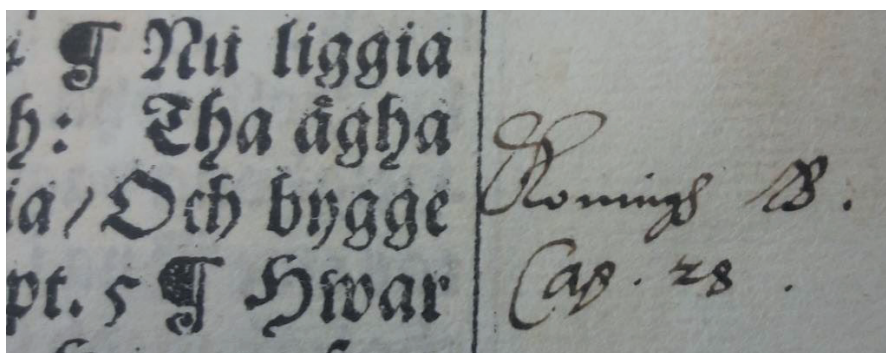 ¶ Nu liggia
h: Tha ägha
ia / Och bygge
pt. 5 ¶ Hwar
Konings B.
Cap. 28.